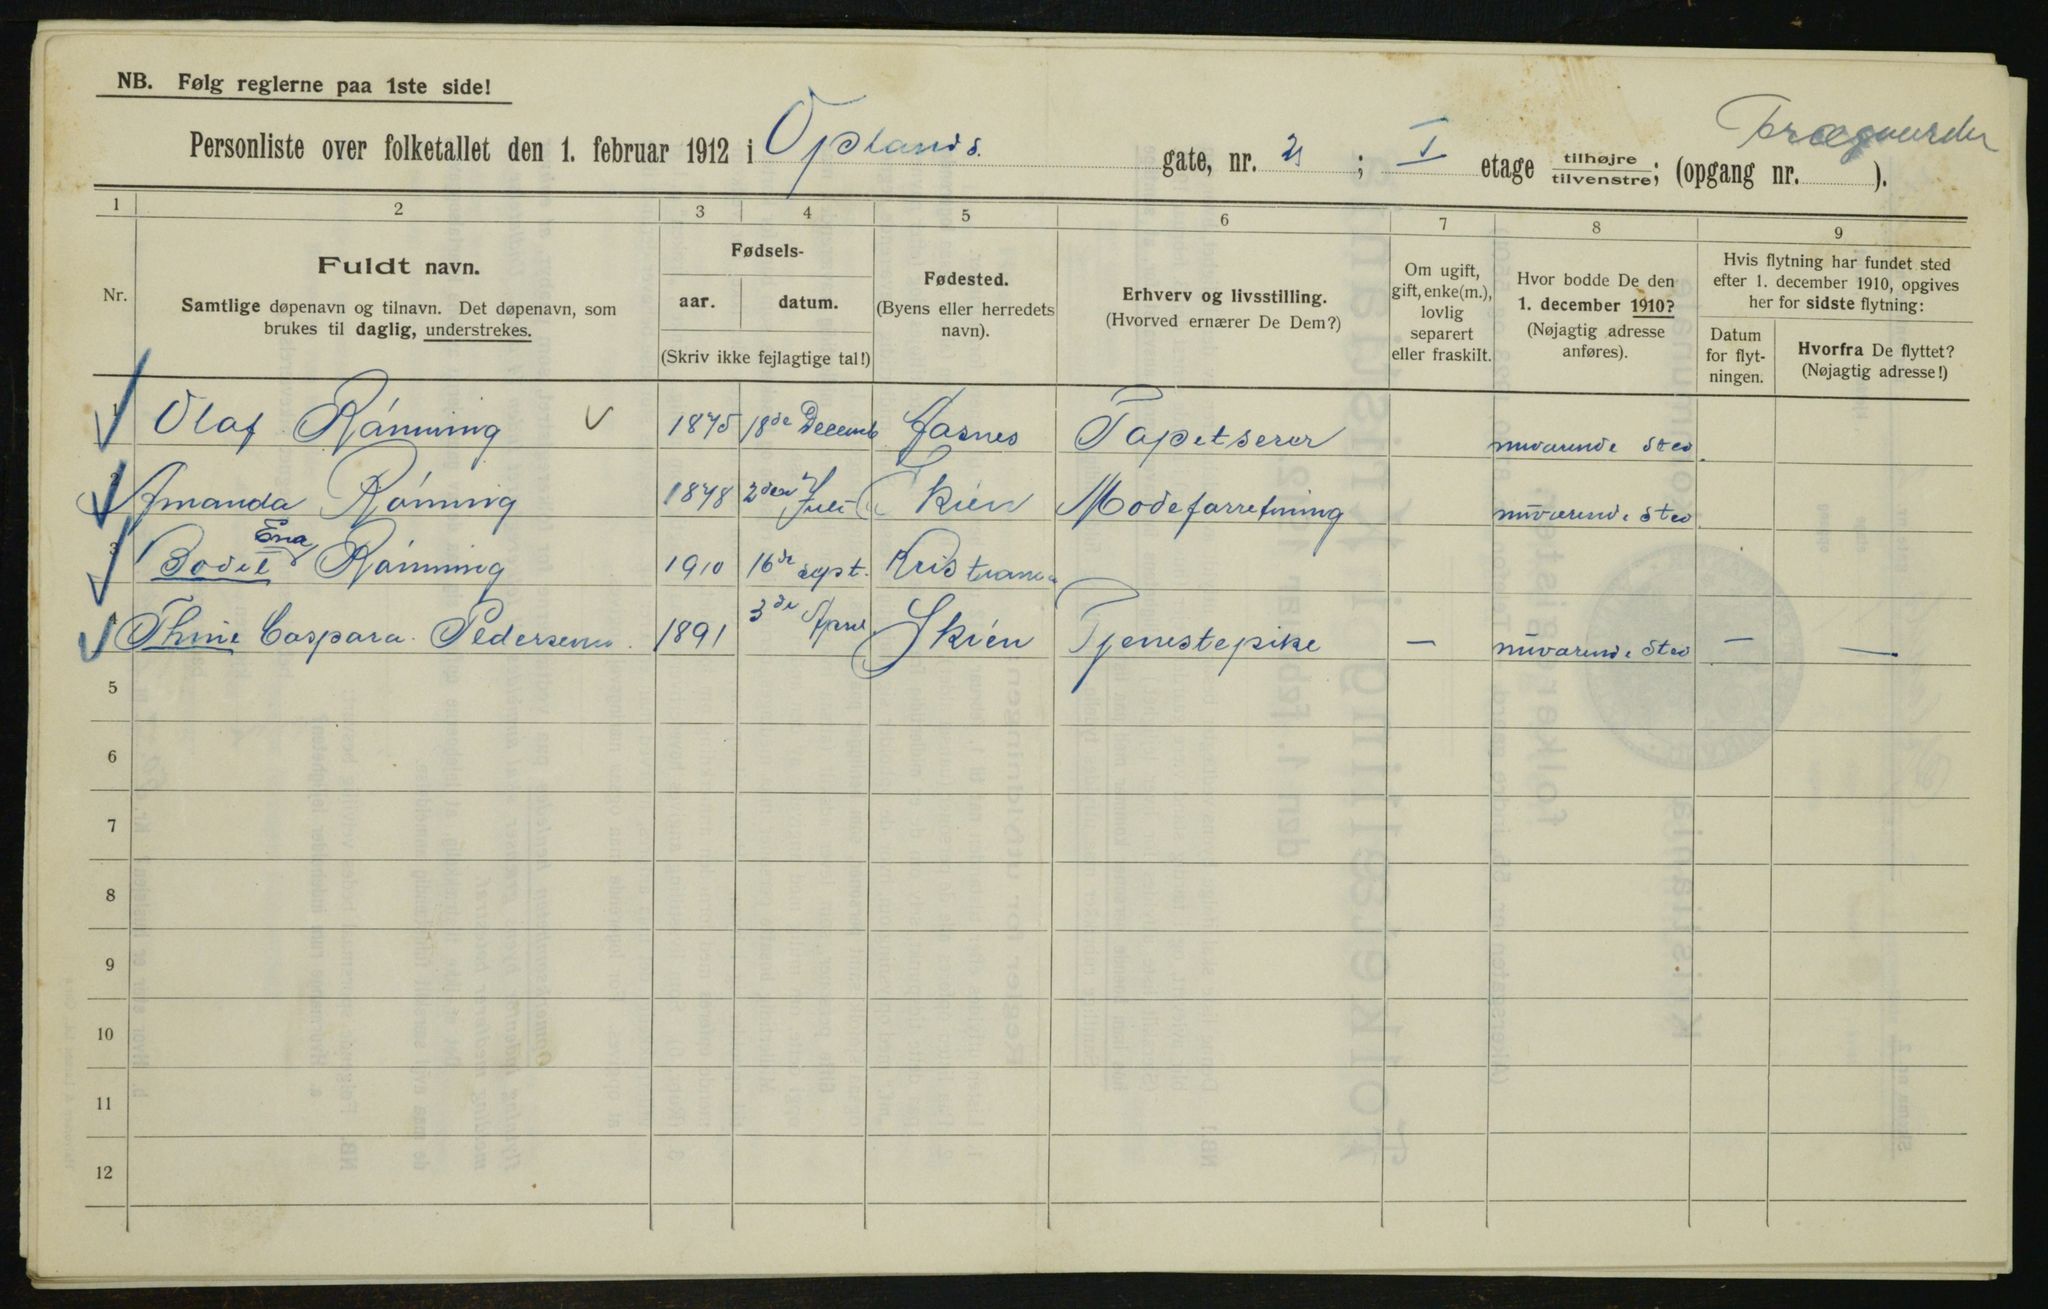 NB. Følg reglerne paa 1ste side!
Personliste over folketallet den 1. februar 1912 i Oplands gate, nr. 21 ; I etage tilhøjre tilvenstre; (opgang nr. ).
1 2 3 4 5 6 7 8 9
Nr.
Fuldt navn.
Samtlige døpenavn og tilnavn. Det døpenavn, som
brukes til daglig, understrekes.
Fødsels-
aar. datum.
(Skriv ikke fejlagtige tal!)
Fødested.
(Byens eller herredets
navn).
Erhverv og livsstilling.
(Hvorved ernærer De Dem?)
Om ugift,
gift, enke(m.),
lovlig
separert
eller fraskilt.
Hvor bodde De den
1. december 1910?
(Nøjagtig adresse
anføres).
Hvis flytning har fundet sted
efter 1. december 1910, opgives
her for sidste flytning:
Datum
for flyt-
ningen.
Hvorfra De flyttet?
(Nøjagtig adresse!)
1 Olaf Rónning 1875 18de Decemb Tapetserer nuvarende Sted
2 Amanda Rónning 1878 2den Juli Skien Modeforretning nuvarende Sted
3 Bodil Ena Rónning 1910 16de sept. Kristiania
4 Thine Caspara Pedersen 1891 3de April Skién Tjenestepike — nuvarende Sted — —
5
6
7
8
9
10
11
12